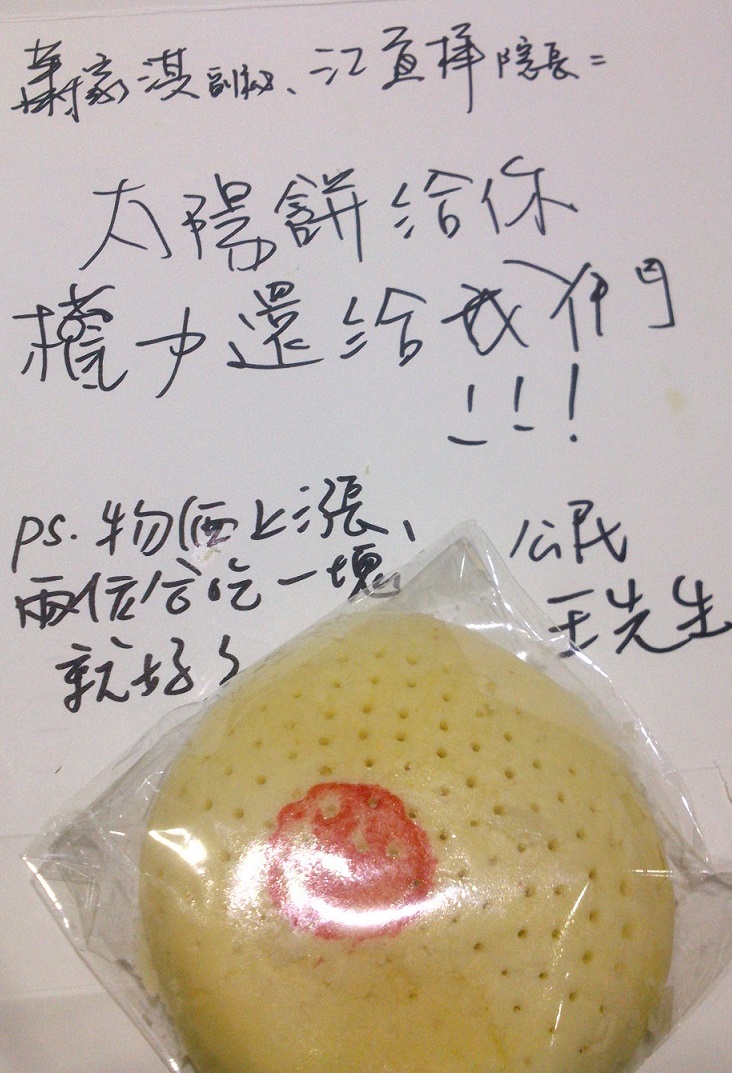 蕭家淇副秘、江宜樺院長=
太陽餅給你
權力還給我們
!!!
ps. 物価上漲、
兩位合吃一塊
就好了
公民
王先生